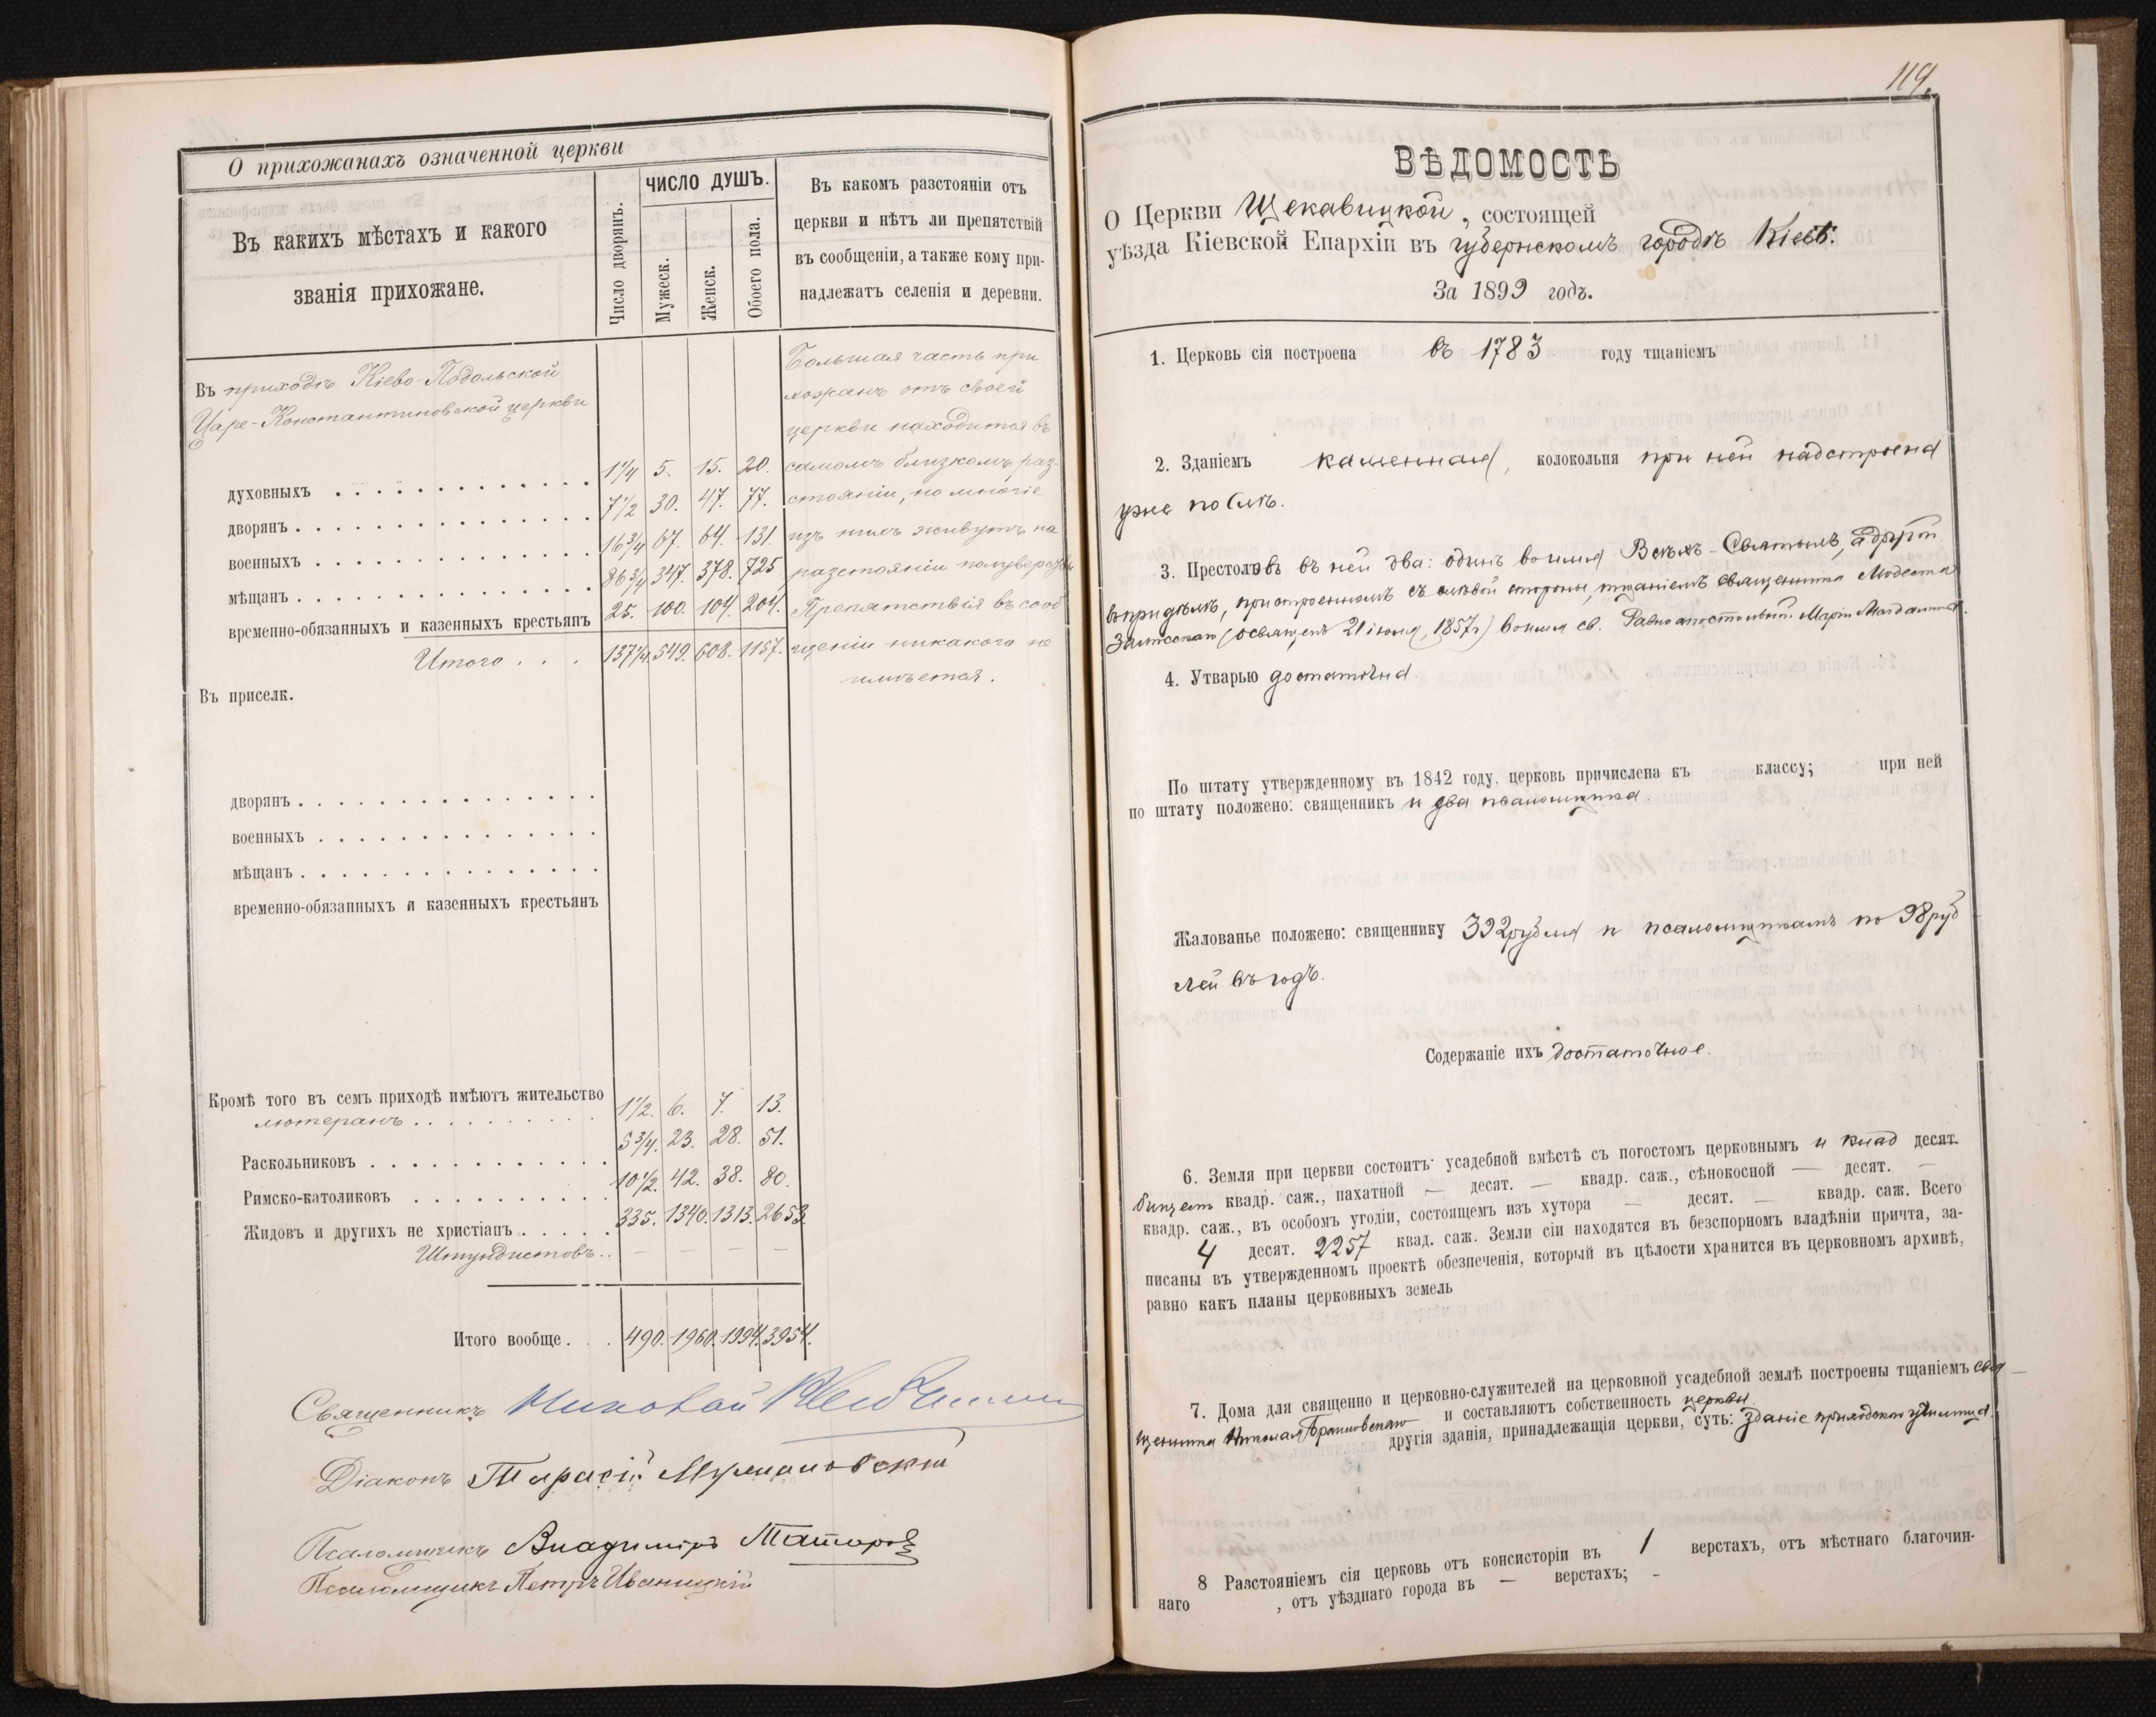 О прихожанахъ означенной церкви
Въ какихъ мѣстахъ и какого
званія прихожане.
Число дворянъ.
ЧИСЛО ДУШЪ.
Мужеск.
Женск.
Обоего пола.
Въ какомъ разстояніи отъ
церкви и нѣтъ ли препятствій
въ сообщеніи, а также кому при-
надлежатъ селенія и деревни.
Въ приходѣ Кіево-Подольской
Царе-Константиновской церкви
духовныхъ 1 1/4 5. 15. 20.
дворянъ 7 1/2 30. 47. 77.
военныхъ 16 3/4 67. 64. 131.
мѣщанъ 86 3/4 347. 378. 725
временно-обязанныхъ и казенныхъ крестьянъ 25. 100. 104. 204.
Итого . . . 137 1/4 549. 608. 1157.
Большая часть при
хожанъ отъ своей
церкви находится въ
самомъ близкомъ раз-
стояніи, но многіе
изъ нихъ живутъ на
разстояніи полуверсты
Препятствія въ сооб
щеніи никакого не
имѣется.
Въ приселк.
дворянъ
военныхъ
мѣщанъ
временно-обязанныхъ и казенныхъ крестьянъ
Кромѣ того въ семъ приходѣ имѣютъ жительство
лютеранъ 1 1/2. 6. 7. 13.
Раскольниковъ 5 3/4. 23. 28. 51.
Римско-католиковъ 10 1/2. 42. 38. 80.
Жидовъ и другихъ не христіанъ 335. 1340. 1313. 2653.
Штундистовъ . . — — — —
Итого вообще . . . 490. 1960. 1994. 3954.
Священникъ Николай
Діаконъ Тарасій
Псаломщикъ Владиміръ
Псаломщикъ Петръ Иваницкій
119.
ВѢДОМОСТЬ
О Церкви Щекавицкой, состоящей
уѣзда Кіевской Епархіи въ губернскомъ городѣ Кіевѣ.
За 1899 годъ.
1. Церковь сія построена въ 1783 году тщаніемъ
2. Зданіемъ каменная, колокольня при ней надстроена
уже послѣ.
3. Престоловъ въ ней два: одинъ во имя Всѣхъ-Святыхъ, а другой
въ придѣлѣ, пристроенномъ съ лѣвой стороны, тщаніемъ священника Модеста
(освященъ 21 іюля, 1857 г) во имя св. Равноапостольной Маріи Магдалины.
4. Утварью достаточна
По штату утвержденному въ 1842 году. церковь причислена къ классу; при ней
по штату положено: священникъ и два псаломщика.
Жалованье положено: священнику 392 рубля и псаломщикамъ по 98 руб
лей въ годъ.
Содержаніе ихъ достаточное.
6. Земля при церкви состоитъ: усадебной вмѣстѣ съ погостомъ церковнымъ и клад десят.
бищемъ квадр. саж., пахатной — десят. — квадр. саж., сѣнокосной — десят. —
квадр. саж., въ особомъ угодіи, состоящемъ изъ хутора — десят. — квадр. саж. Всего
4 десят. 2257 квад. саж. Земли сіи находятся въ безспорномъ владѣніи причта, за-
писаны въ утвержденномъ проектѣ обезпеченія, который въ цѣлости хранится въ церковномъ архивѣ,
равно какъ планы церковныхъ земель
7. Дома для священно и церковно-служителей на церковной усадебной землѣ построены тщаніемъ свя
щенника Николая и составляютъ собственность церкви.
другія зданія, принадлежащія церкви, суть: зданіе приходскаго училища.
8 Разстояніемъ сія церковь отъ консисторіи въ 1 верстахъ, отъ мѣстнаго благочин-
наго , отъ уѣзднаго города въ — верстахъ; -